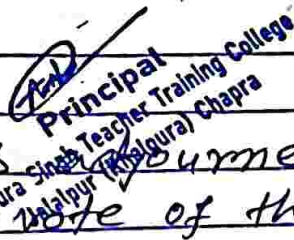 Principal
ura Singh Teacher Training College
Jalalpur (Khalgura) Chapra
adjourne
vote of th